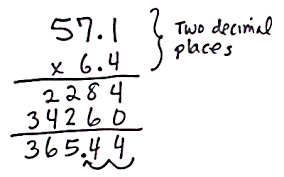 57.1
x 6.4
Two decimal
places
2284
34260
365.44